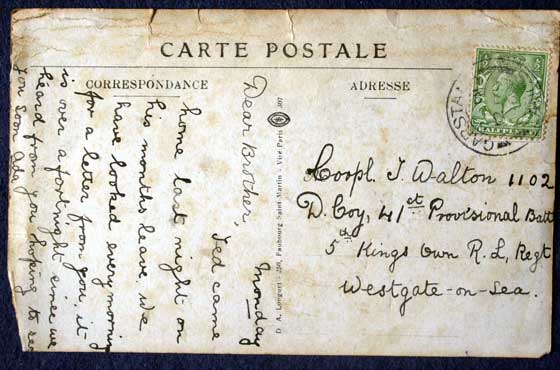 CARTE POSTALE
CORRESPONDANCE
ADRESSE
Monday
Dear Brother,
Ted came
home last night on
his months leave. We
have looked every morning
for a letter from you, it
is over a fortnight since we
heard from you hoping to see
you soon Ada
D. A. Longuet - 250, Faubourg Saint Martin - Vise Paris 307
HALFPENNY
GARSTA
Corpl. J. Walton 1102
D. Coy, 41st Provisional Batt
5th Kings Own R. L. Regt
Westgate-on-Sea.